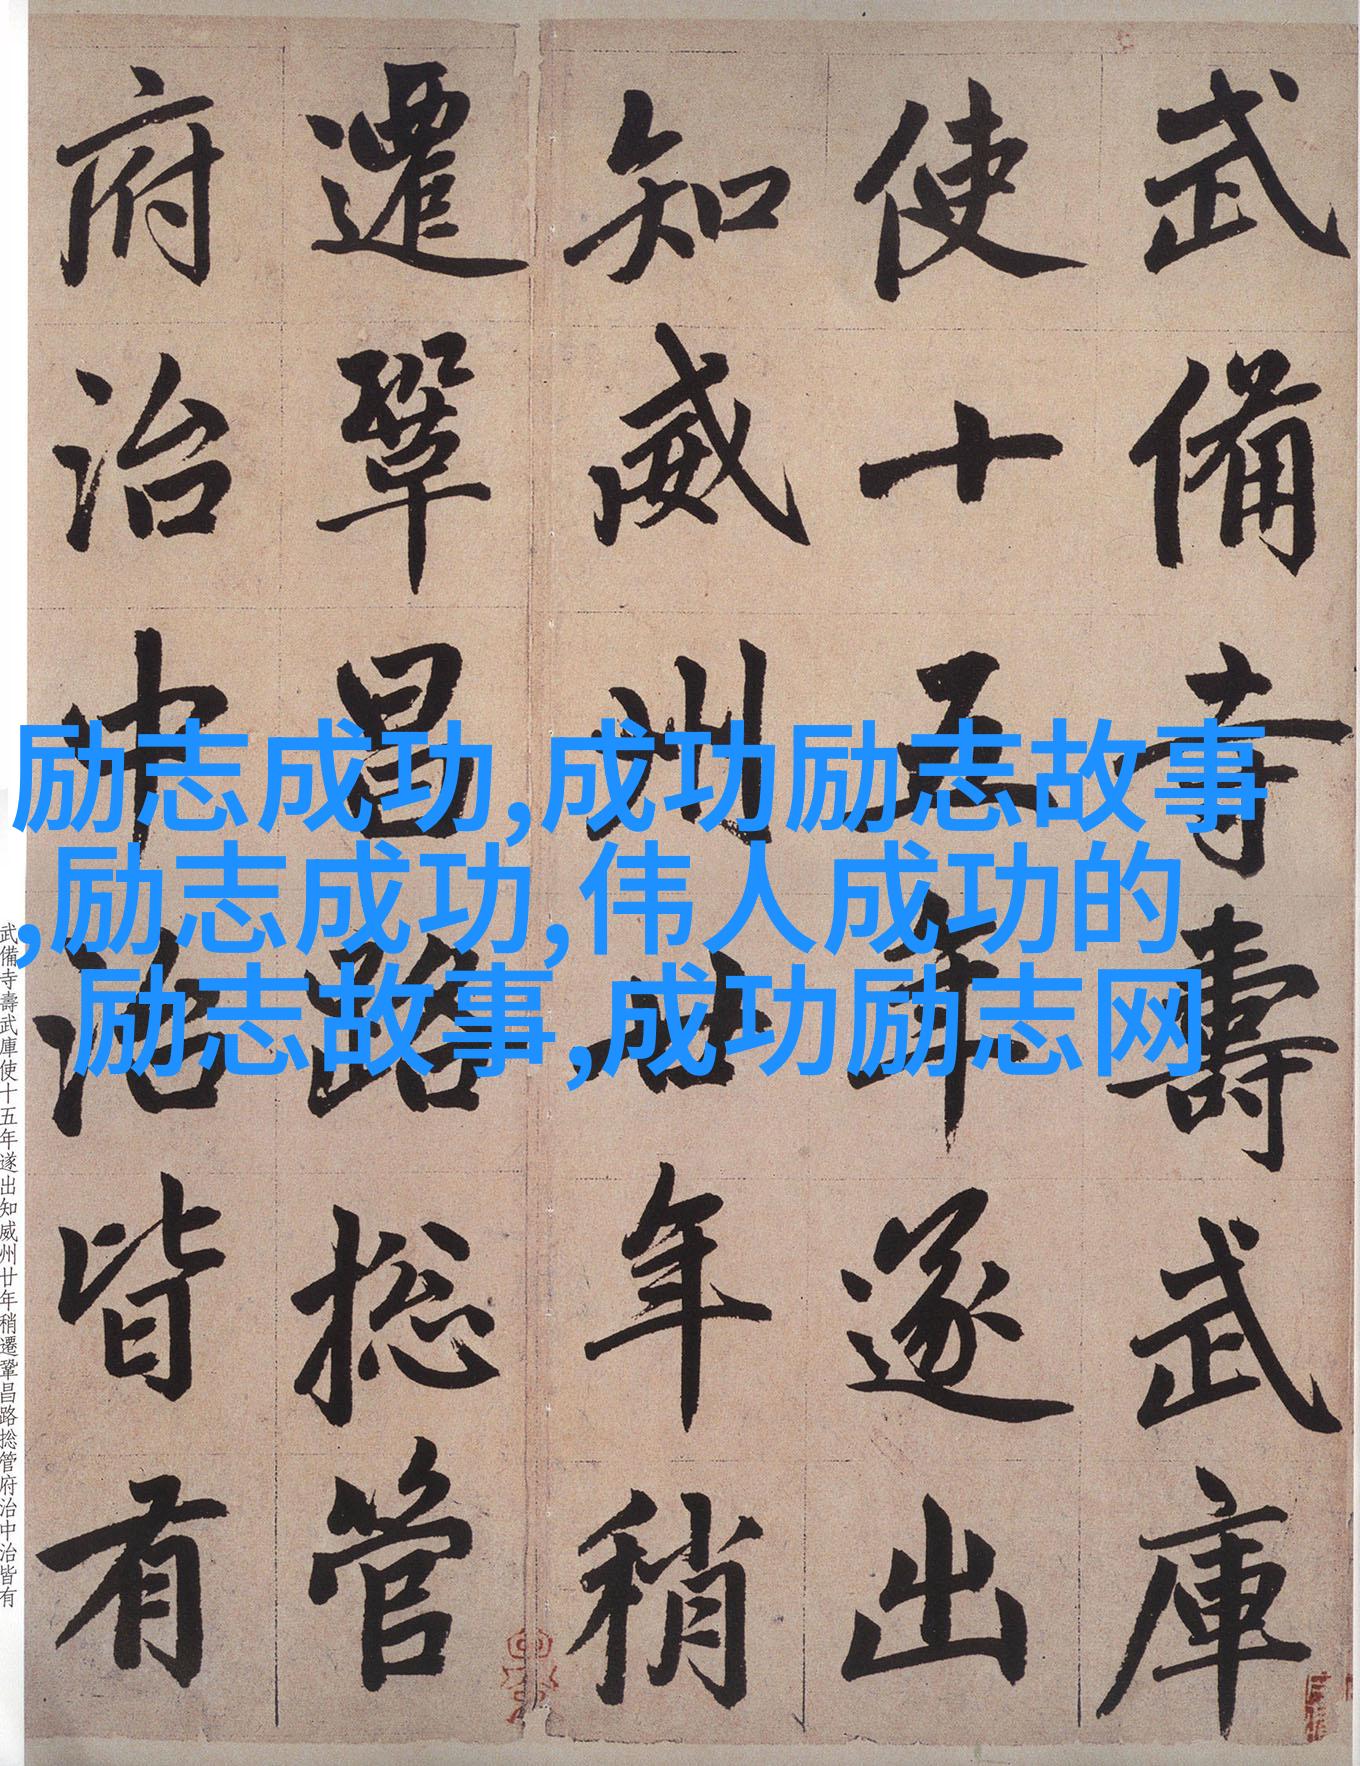 武備寺壽武庫
使十五年遂出
知威州廿年稍
遷鞏昌路捴管
府治中治皆有
励志成功,成功励志故事
,励志成功,伟人成功的
励志故事,成功励志网
武備寺壽武庫使十五年遂出知威州廿年稍遷鞏昌路捴管府治中治皆有